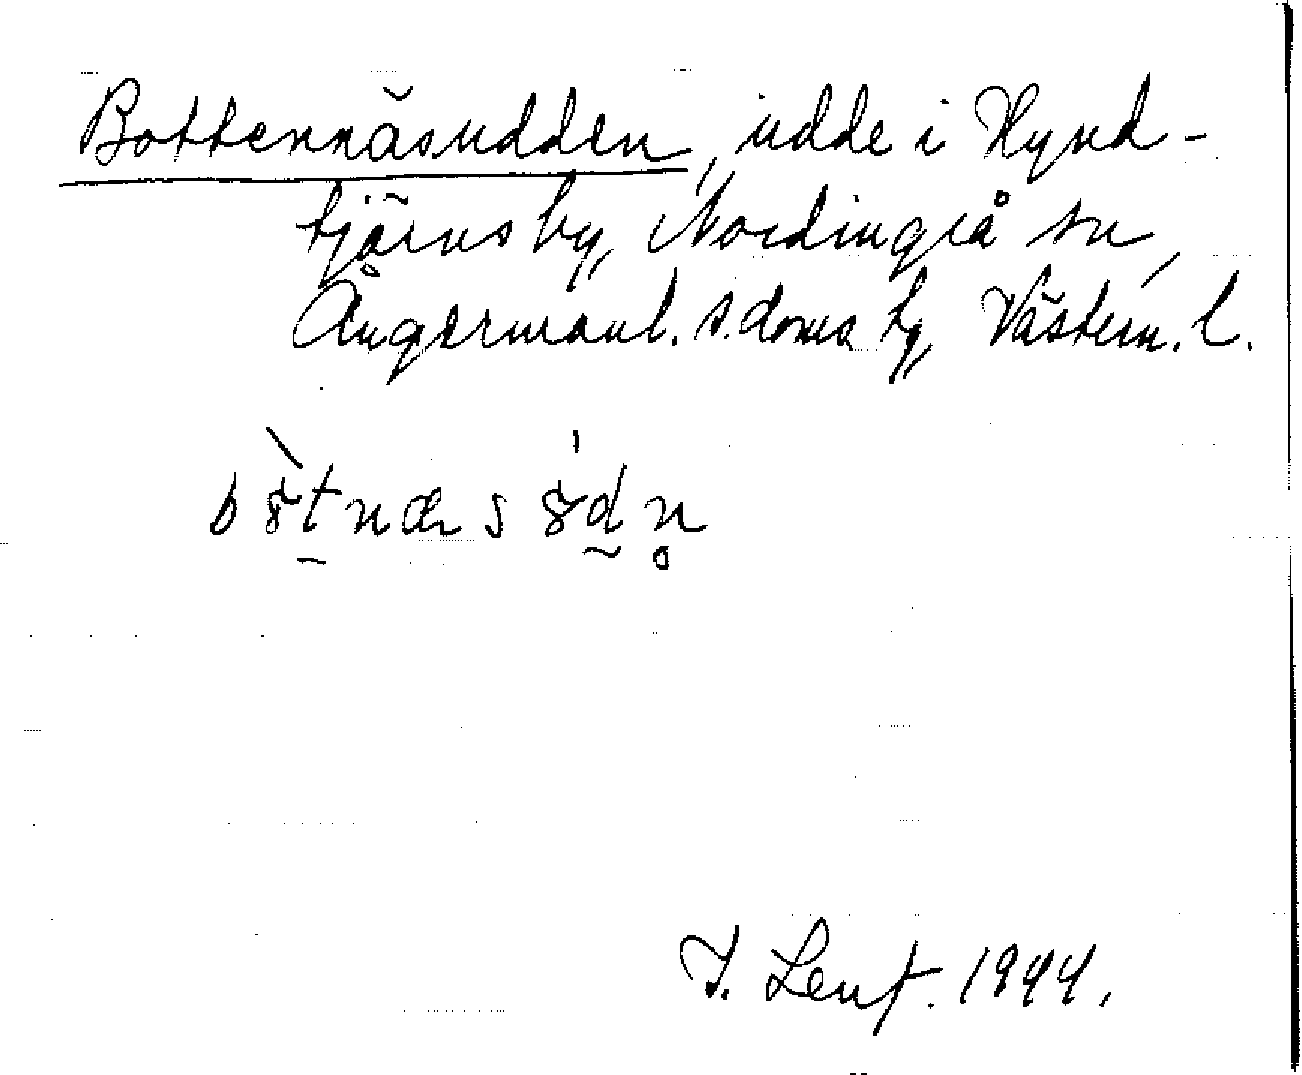 Bottennäsudden, udde i Hynd-
tjärns by, Nordingrå sn,
Ångermanl. s. doms hg, Västern. l.
J. Lenf. 1944.